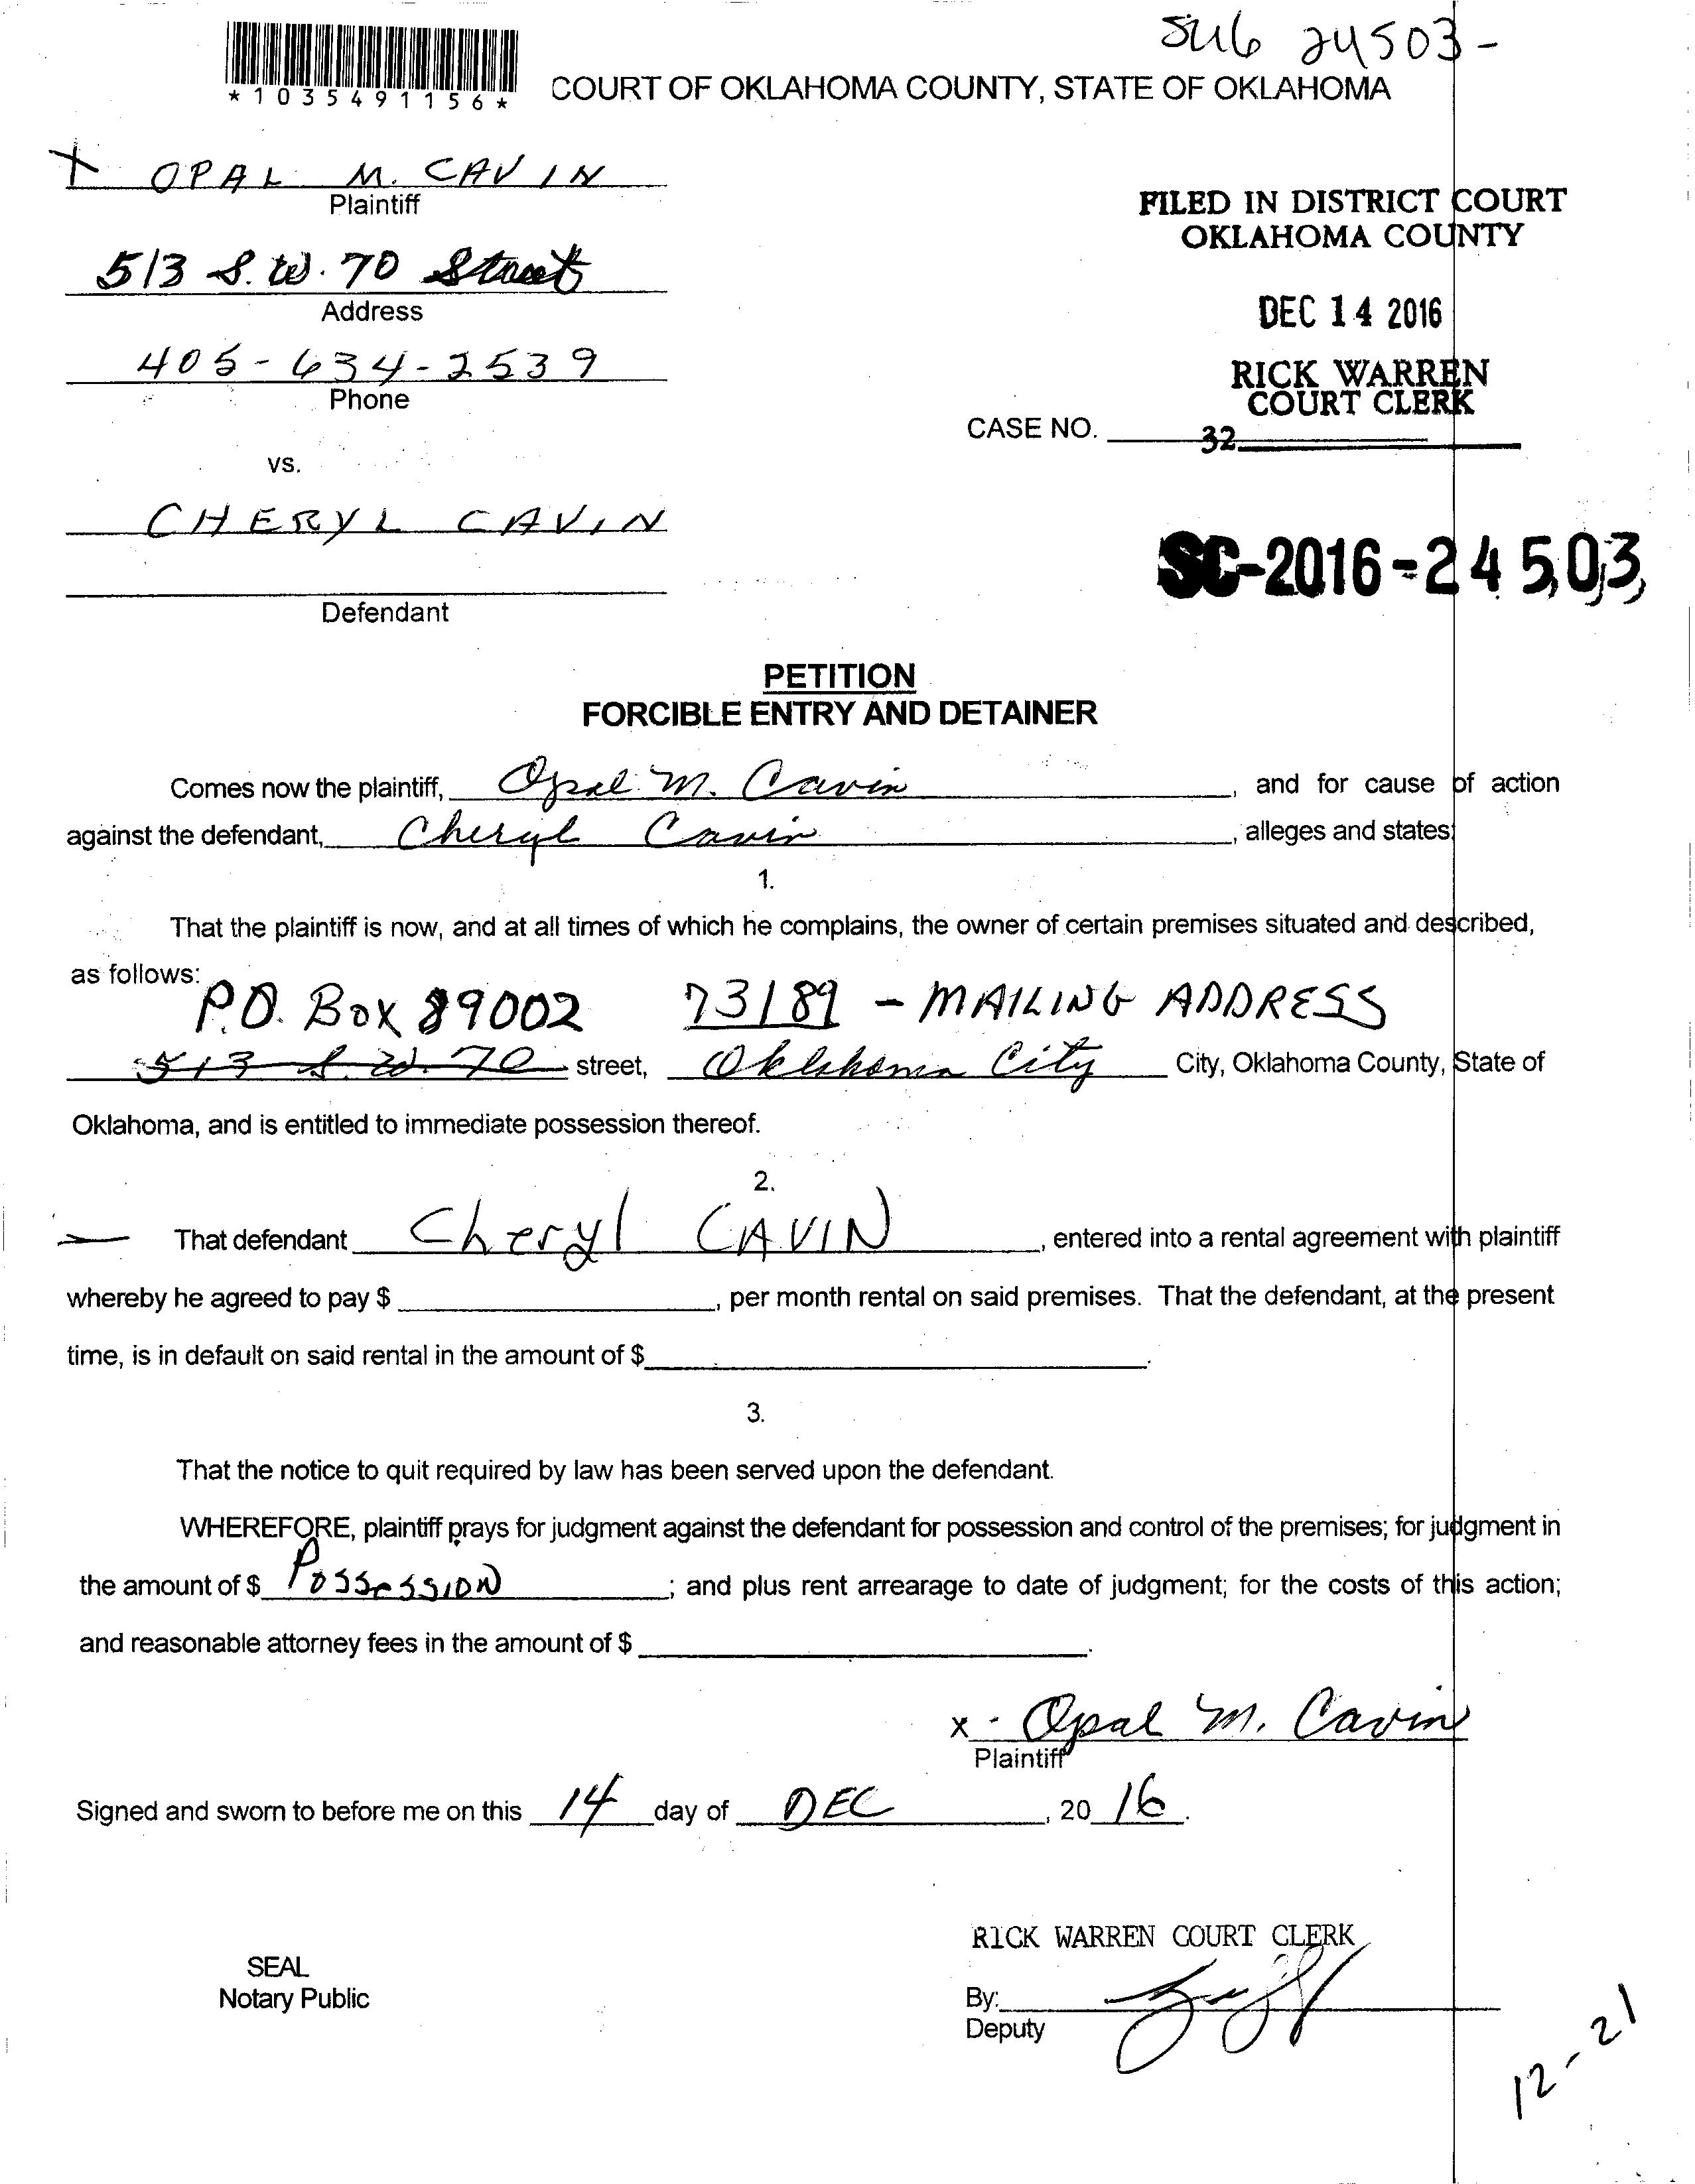 SC16 24503-
*1035491156*
COURT OF OKLAHOMA COUNTY, STATE OF OKLAHOMA
X OPAL M. CAVIN
Plaintiff
FILED IN DISTRICT COURT
OKLAHOMA COUNTY
513 S.W. 70 Street
Address
DEC 14 2016
405-634-2539
Phone
RICK WARREN
COURT CLERK
CASE NO.
32
vs.
CHERYL CAVIN
SC-2016-24503
Defendant
PETITION
FORCIBLE ENTRY AND DETAINER
Comes now the plaintiff, Opal M. Cavin, and for cause of action
against the defendant, Cheryl Cavin, alleges and states:
1.
That the plaintiff is now, and at all times of which he complains, the owner of certain premises situated and described,
as follows:
P.O. Box 89002 73189 - MAILING ADDRESS
513 S. W. 70 street, Oklahoma City City, Oklahoma County, State of
Oklahoma, and is entitled to immediate possession thereof.
2.
— That defendant Cheryl CAVIN, entered into a rental agreement with plaintiff
whereby he agreed to pay $ , per month rental on said premises. That the defendant, at the present
time, is in default on said rental in the amount of $ .
3.
That the notice to quit required by law has been served upon the defendant.
WHEREFORE, plaintiff prays for judgment against the defendant for possession and control of the premises; for judgment in
the amount of $ Possession ; and plus rent arrearage to date of judgment; for the costs of this action;
and reasonable attorney fees in the amount of $ .
x - Opal M. Cavin
Plaintiff
Signed and sworn to before me on this 14 day of DEC, 20 16.
RICK WARREN COURT CLERK
SEAL
Notary Public
By:
Deputy
12-21